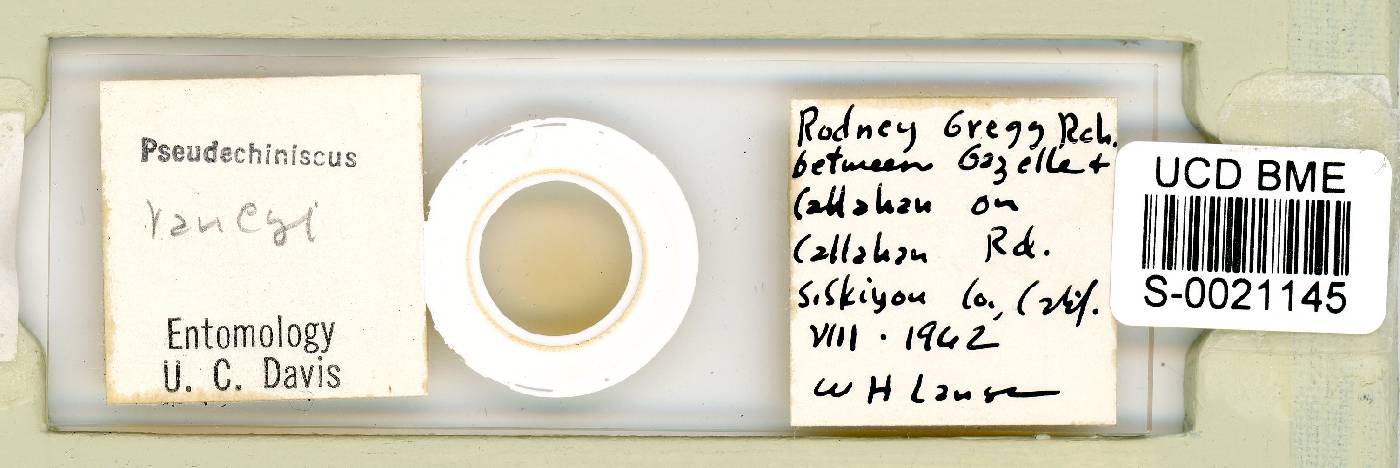 Pseudechiniscus
Entomology
U. C. Davis
Rodney Gregg Rch.
between Gazelle +
Callahan on
Callahan Rd.
Siskiyou Co., Calif.
VIII · 1962
W H Lange
UCD BME
S-0021145